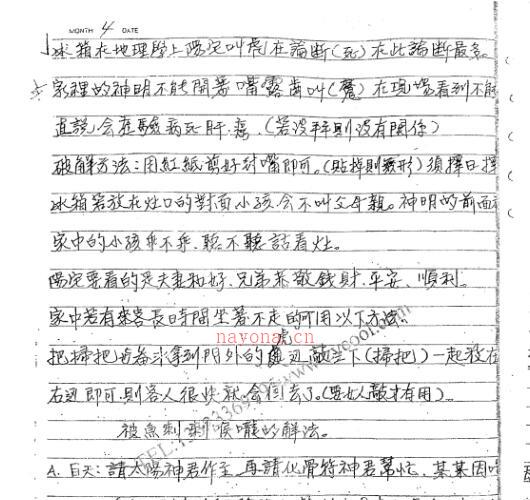 MONTH 4 DATE
冰箱在地理學上陽宅叫虎在論斷(死)在此論斷最多
家裡的神明不能開著嘴露齒叫(魔)在現場看到不能
直說會應驗病死肝.癌.(若沒拜則沒有關係)
破解方法:用紅紙剪好封嘴即可.(貼掉則無形)須擇日擇
冰箱若放在灶口的對面小孩會不叫父母親。神明的前面
家中的小孩乖不乖.聽不聽話看灶。
陽宅要看的是夫妻和好.兄弟恭敬錢財.平安.順利。
家中若有來客長時間坐著不走的可用以下方法.
虎
把掃把 拿到門外的 邊敲三下(掃把)一起放在
右邊即可.則客人很快就會回去了.(要女人敲才有用).
nayona.cn
被魚刺刺喉嚨的解法。
A. 白天:請太陽神君作主 再請化骨符神君幫忙.某某因